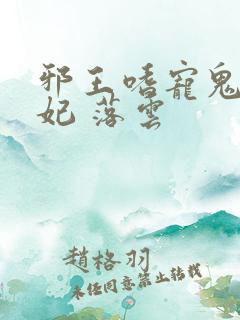 邪王嗜寵鬼
妃 落雲
趙格羽
未经同意禁止转载